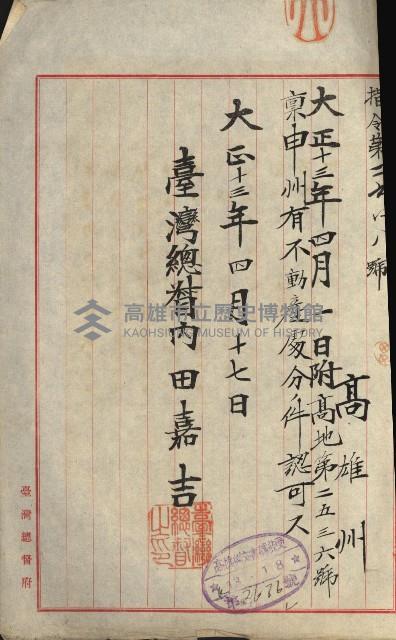 指令第
號
高雄州
大正十三年四月一日附高地第二五三六號
稟申州有不動產處分ノ件認可ス
大正十三年四月十七日
臺灣總督內田嘉吉
臺灣總督之印
臺灣總督府
高雄市立歷史博物館
KAOHSIUNG MUSEUM OF HISTORY